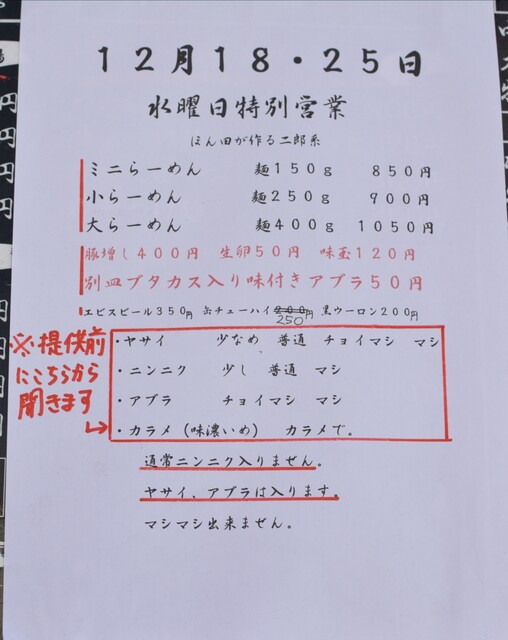 12月18・25日
水曜日特別営業
ほん田が作る二郎系
ミニらーめん 麺150g 850円
小らーめん 麺250g 900円
大らーめん 麺400g 1050円
豚増し400円 生卵50円 味玉120円
別皿ブタカス入り味付きアブラ50円
エビスビール350円 缶チューハイ200円 黒ウーロン200円
250
※提供前
にこちらから
聞きます
・ヤサイ 少なめ 普通 チョイマシ マシ
・ニンニク 少し 普通 マシ
・アブラ チョイマシ マシ
・カラメ (味濃いめ) カラメで。
通常ニンニク入りません。
ヤサイ、アブラは入ります。
マシマシ出来ません。
円
円
円
円
円
円
円
円